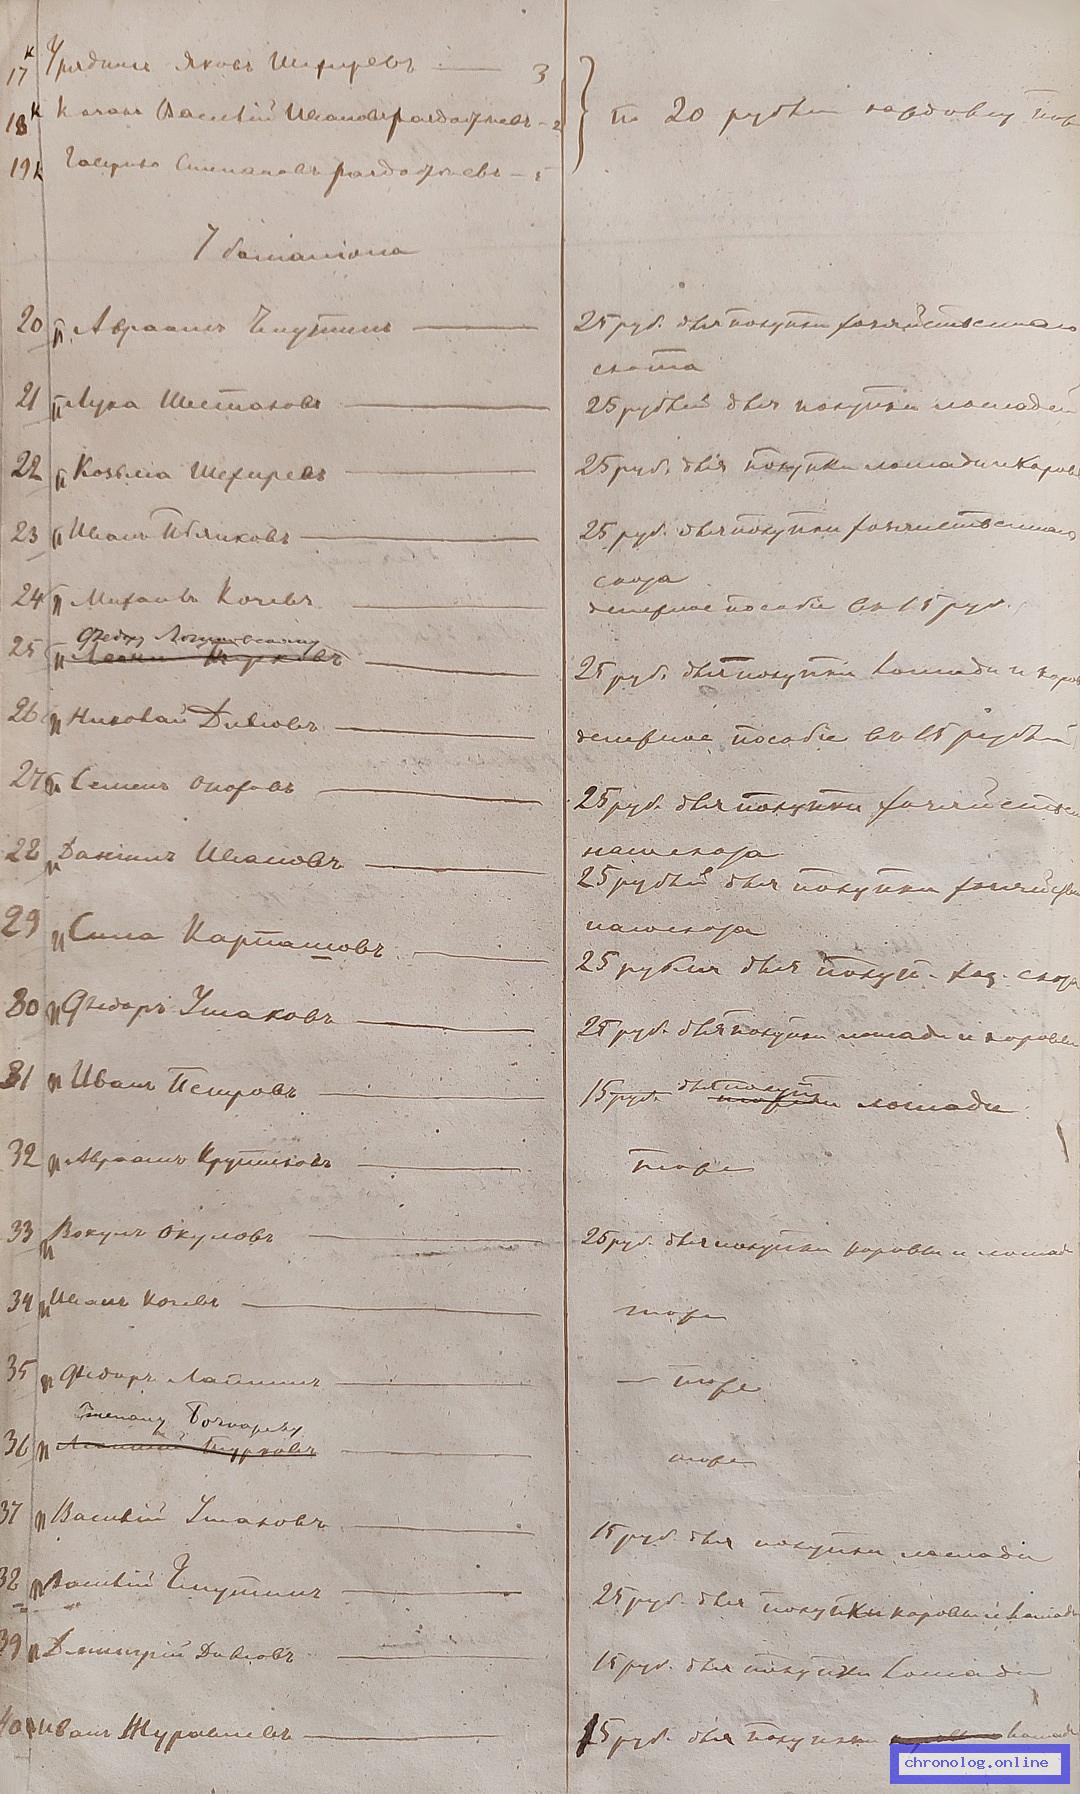 17 к Урядникъ Яковъ Шехиревъ — 3
18 к Казакъ Василій Ивановъ
19 к Степановъ
по 20 рублей каждому
7 баталіона
20 п. Авраамъ
25 руб. для покупки хозяйственнаго
скота
21 п Лука Шестаковъ
25 рублей для покупки лошадей
22 п Козьма Шехиревъ
25 руб. для покупки лошади и коровы
23 п Иванъ
25 руб. для покупки хозяйственнаго
скота
24 п Михаилъ Кочевъ
денежное пособіе въ 15 руб.
25 п Федору
25 руб. для покупки лошади и коров
26 п Николай Дивковъ
денежное пособіе въ 15 рублей
27 п Семенъ
25 руб. для покупки хозяйствен
наго скота
28 п Даніилъ Ивановъ
25 рублей для покупки хозяйствен
наго скота
29 п Сила Карташовъ
25 рублей для покуп. хоз. скота
30 п Федоръ Ушаковъ
25 руб. для покупки лошади и коровы
31 п Иванъ Петровъ
15 руб. для покупки лошади
32 п Авраамъ Крутиковъ
тоже
33 п Вокулъ Окуловъ
25 руб. для покупки коровы и лошад
34 п Иванъ Кочевъ
тоже
35 п Федоръ Лапшинъ
— тоже
36 п Степану Бочкареву
тоже
37 п Василій Ушаковъ
15 руб. для покупки лошади
38 п Василій
25 руб. для покупки коровы и лошади
39 п Дмитрій Дивковъ
15 руб. для покупки лошади
40 п Иванъ Журавлевъ
15 руб. для покупки лошади
chronolog.online